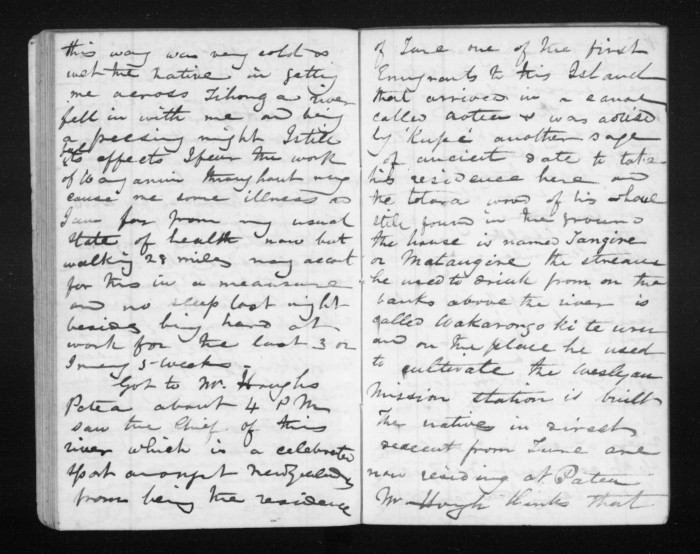 this way was very cold &
wet the native in getting
me across Tihonga river
fell in with me and being
a freezing night I still
feel its effects I fear the work
of Waganui throughout may
cause me some illness as
I am far from my usual
State of health now but
walking 28 miles may account
for this in a measure
and no sleep last night
besides being hard at
work for the last 3 or
I may 5 weeks.
Got to Mr. Houghs
Patea about 4 P.M
saw the Chief of this
river which is a celebrated
spot amongst New Zealanders
from being the residence
of Ture one of the first
Emigrants to this Island
that arrived in a canoe
called Aotea & was advised
by 'Kupe' another sage
of ancient date to take
his residence here and
the totara wood of his whare
still found in the ground
the house is named Tangire
or Matangire the stream
he used to drink from on the
banks above the river is
called Wakarongo ki te uru
and on the place he used
to cultivate the Wesleyan
Mission station is built
The natives in direct
descent from Ture are
now residing at Patea
Mr Hough thinks that